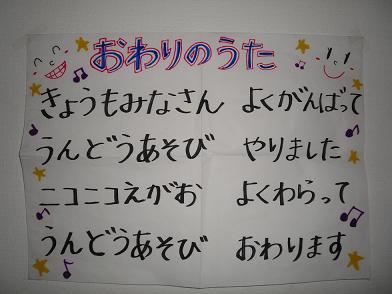 おわりのうた
きょうもみなさん よくがんばって
うんどうあそび やりました
ニコニコえがお よくわらって
うんどうあそび おわります